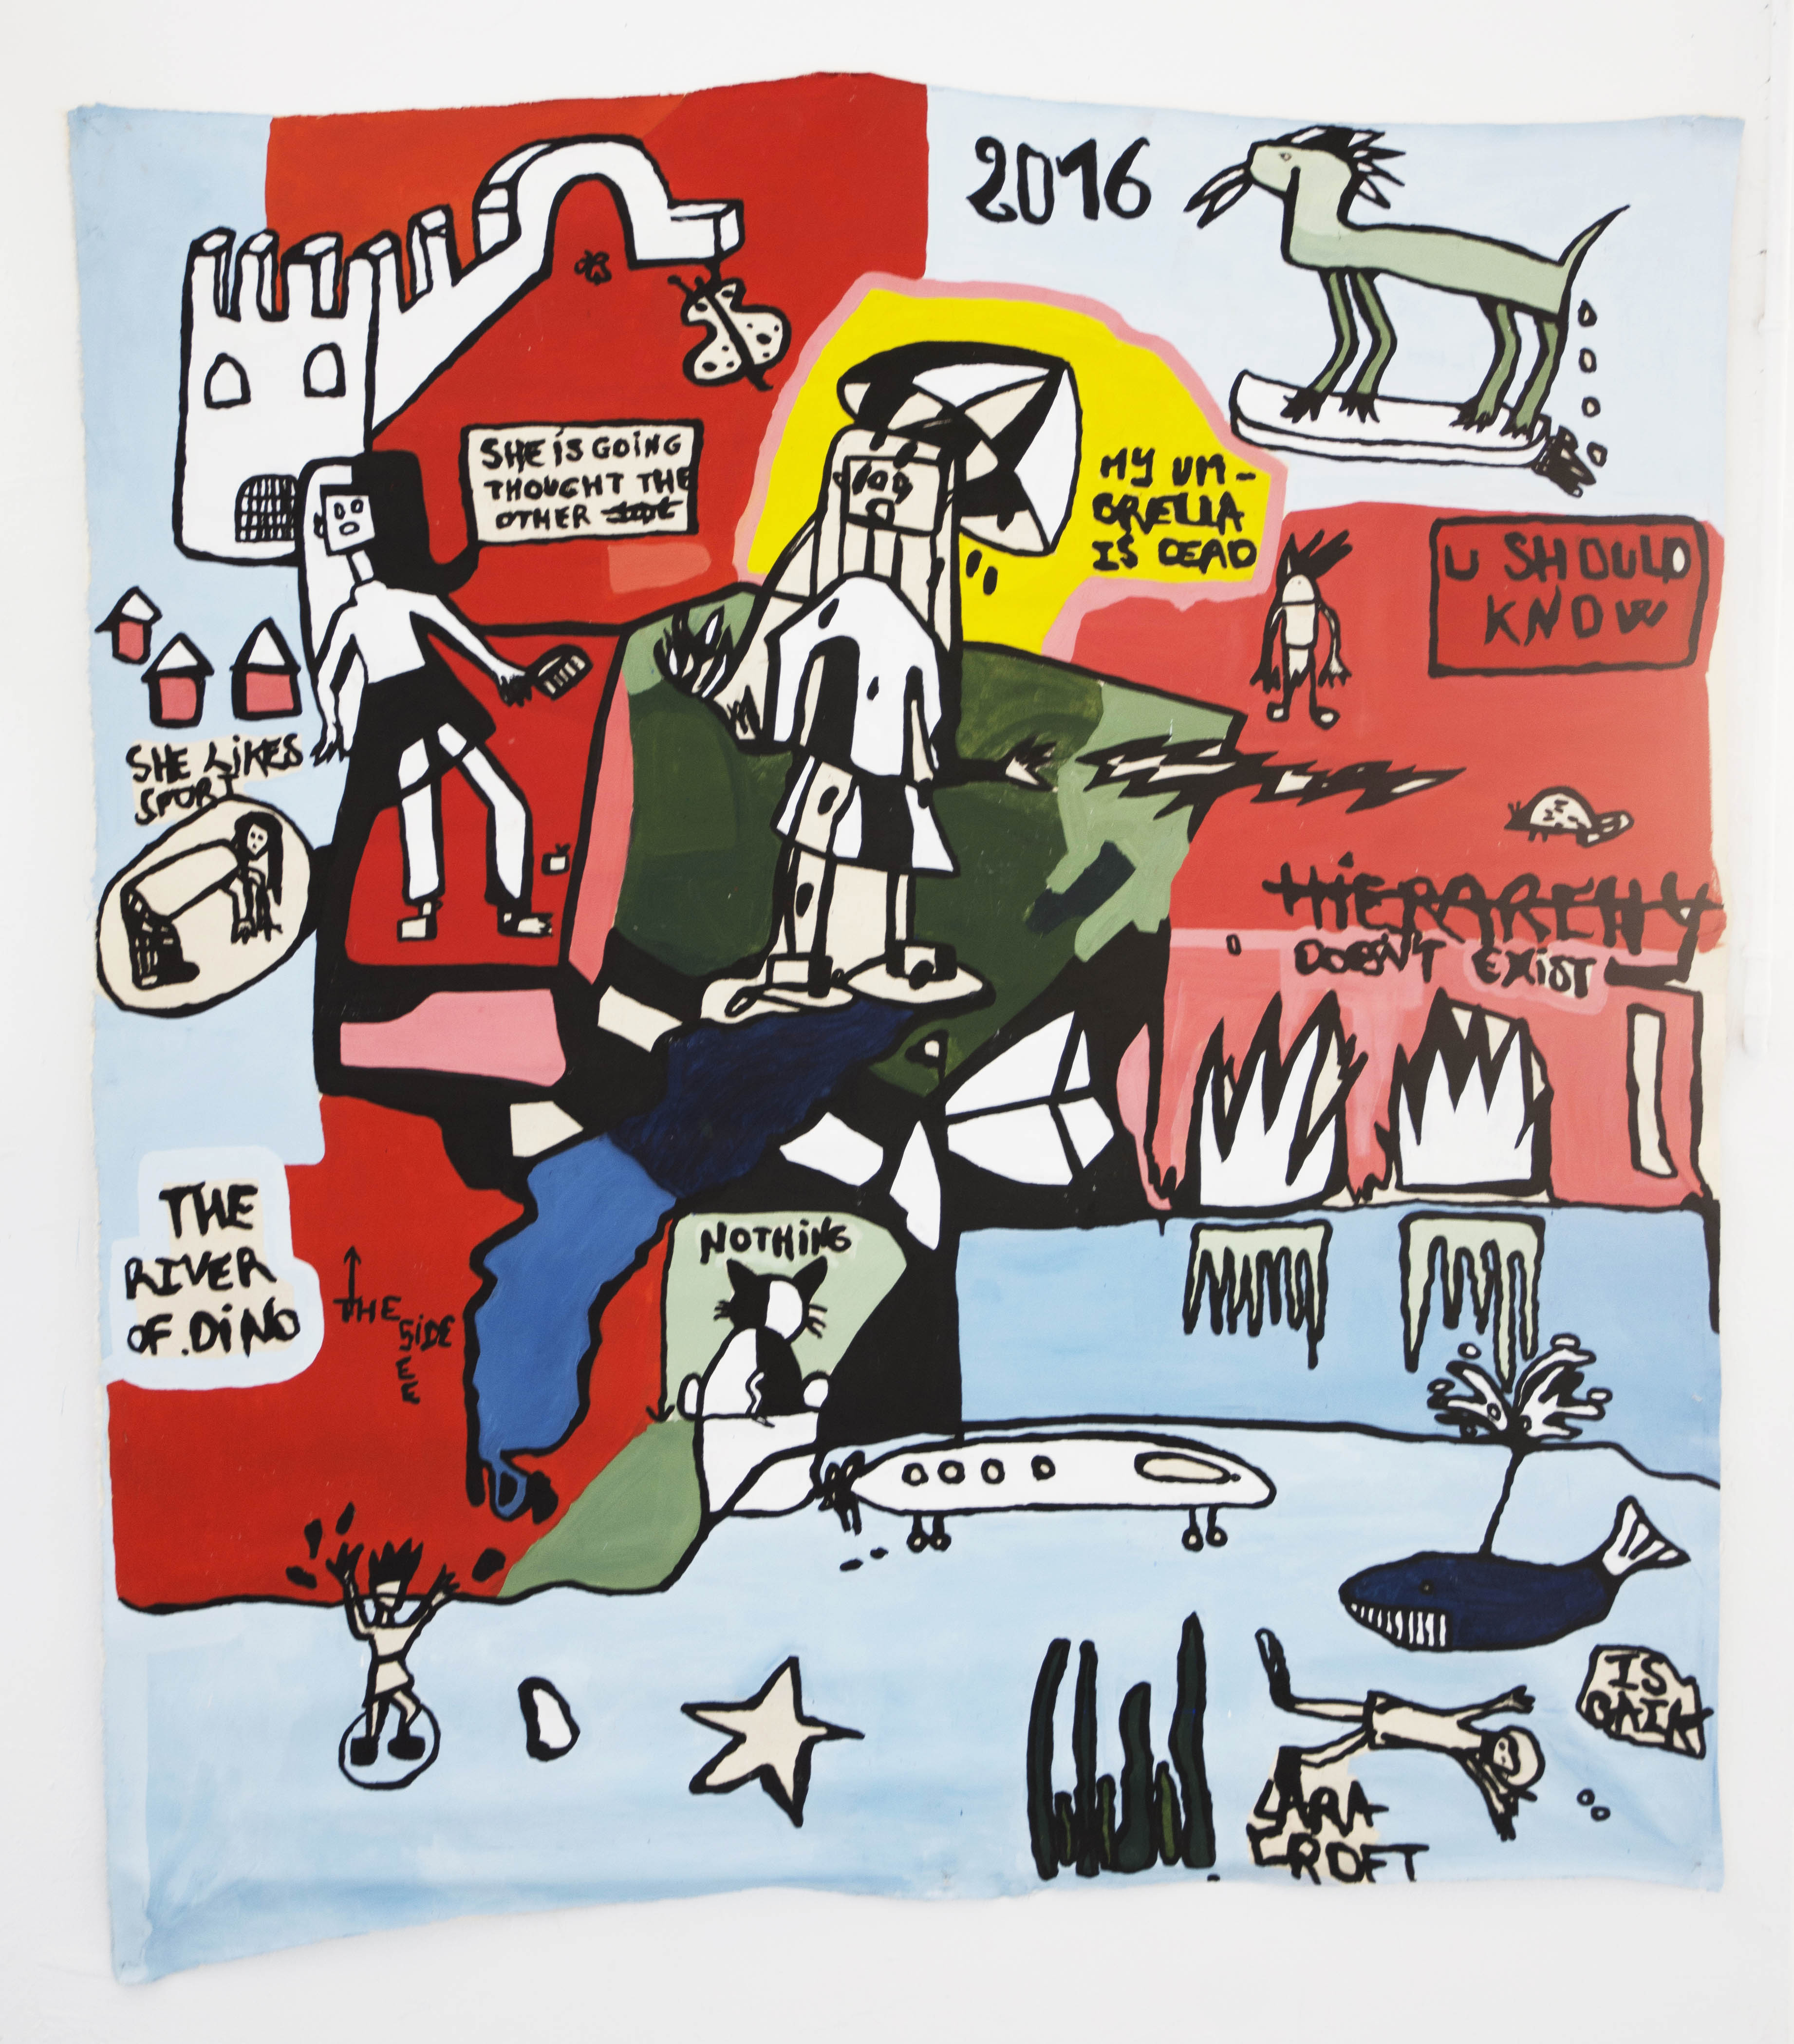 2016
SHE iS GOiNG
THOUGHT THE
OTHER
MY UM-
BRELLA
IS DEAD
U SHOULD
KNOW
SHE LiKES
SPORT
HiERARCHY
DOESN'T EXiST
THE
RIVER
OF.DiNO
THE
SiDE
E
E
NOTHiNG
IS
BACK
LARA
CROFT